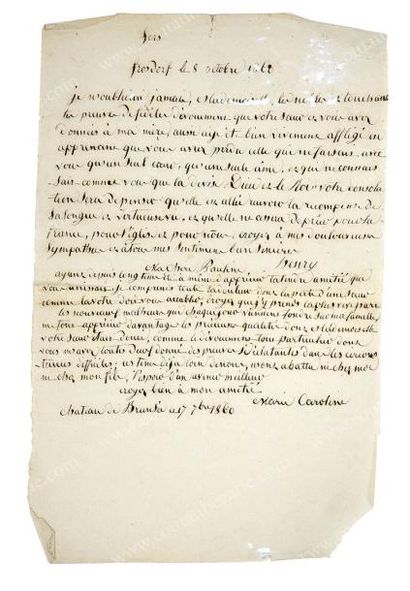 frosdorf le 8 octobre 1862
je n'oublierai jamais, Mademoiselle, les nobles et touchantes
les preuves de fidèle dévouement que votre sœur et vous avez
données à ma mère, aussi ai-je été bien vivement affligé en
apprenant que vous avez perdu celle qui ne faisait avec
vous qu'un seul cœur, qu'une seule âme, et qui ne connaissait
comme vous que la devise Dieu et le Roi votre consola
tion sera de penser qu'elle est allée recevoir la récompense de
sa longue et vertueuse vie, et qu'elle ne cesse de prier pour la
france, pour l'église et pour nous, croyez à ma douloureuse
sympathie et à tous mes sentiments bien sincères
henry
ayant depuis longtemps été à même d'apprécier la tendre amitié qui
vous unissait, je comprends toute la douleur dont la perte d'une sœur
comme la vôtre doit vous accabler, croyez que j'y prends la part
les nouveaux malheurs qui chaque jour viennent fondre sur ma famille,
me font apprécier davantage les précieuses qualités dont Mademoiselle
votre sœur était douée, comme le dévouement tout particulier dont
vous m'avez toutes deux donné des preuves si éclatantes dans les
difficiles, ces temps déjà loin de nous, n'ont abattu ni chez moi
ni chez mon fils, l'espoir d'un avenir meilleur
croyez bien à mon amitié
Marie Caroline
chateau de Brunsée ce 17 7bre 1860